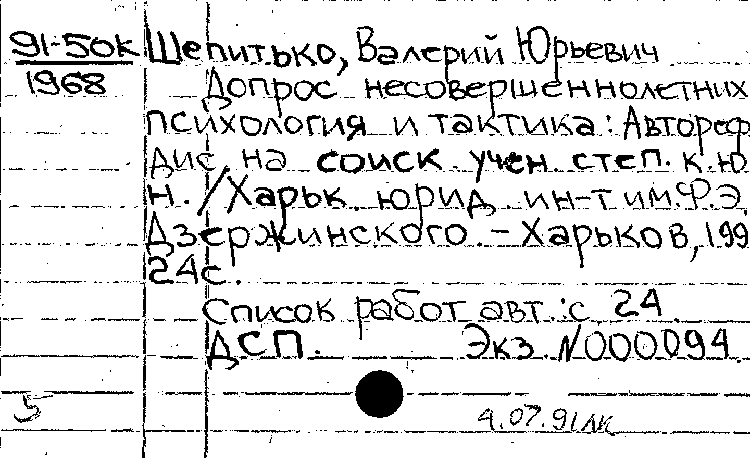 91-50к Шепитько, Валерий Юрьевич
1968 Допрос несовершеннолетних
психология и тактика: Автореф
дис. на соиск. учен. степ. к.ю.
н. / Харьк. юрид. ин-т им. Ф.Э.
Дзержинского. - Харьков, 199
24с.
Список работ авт.: с 24.
ДСП. Экз. N000094
5
4.07.91